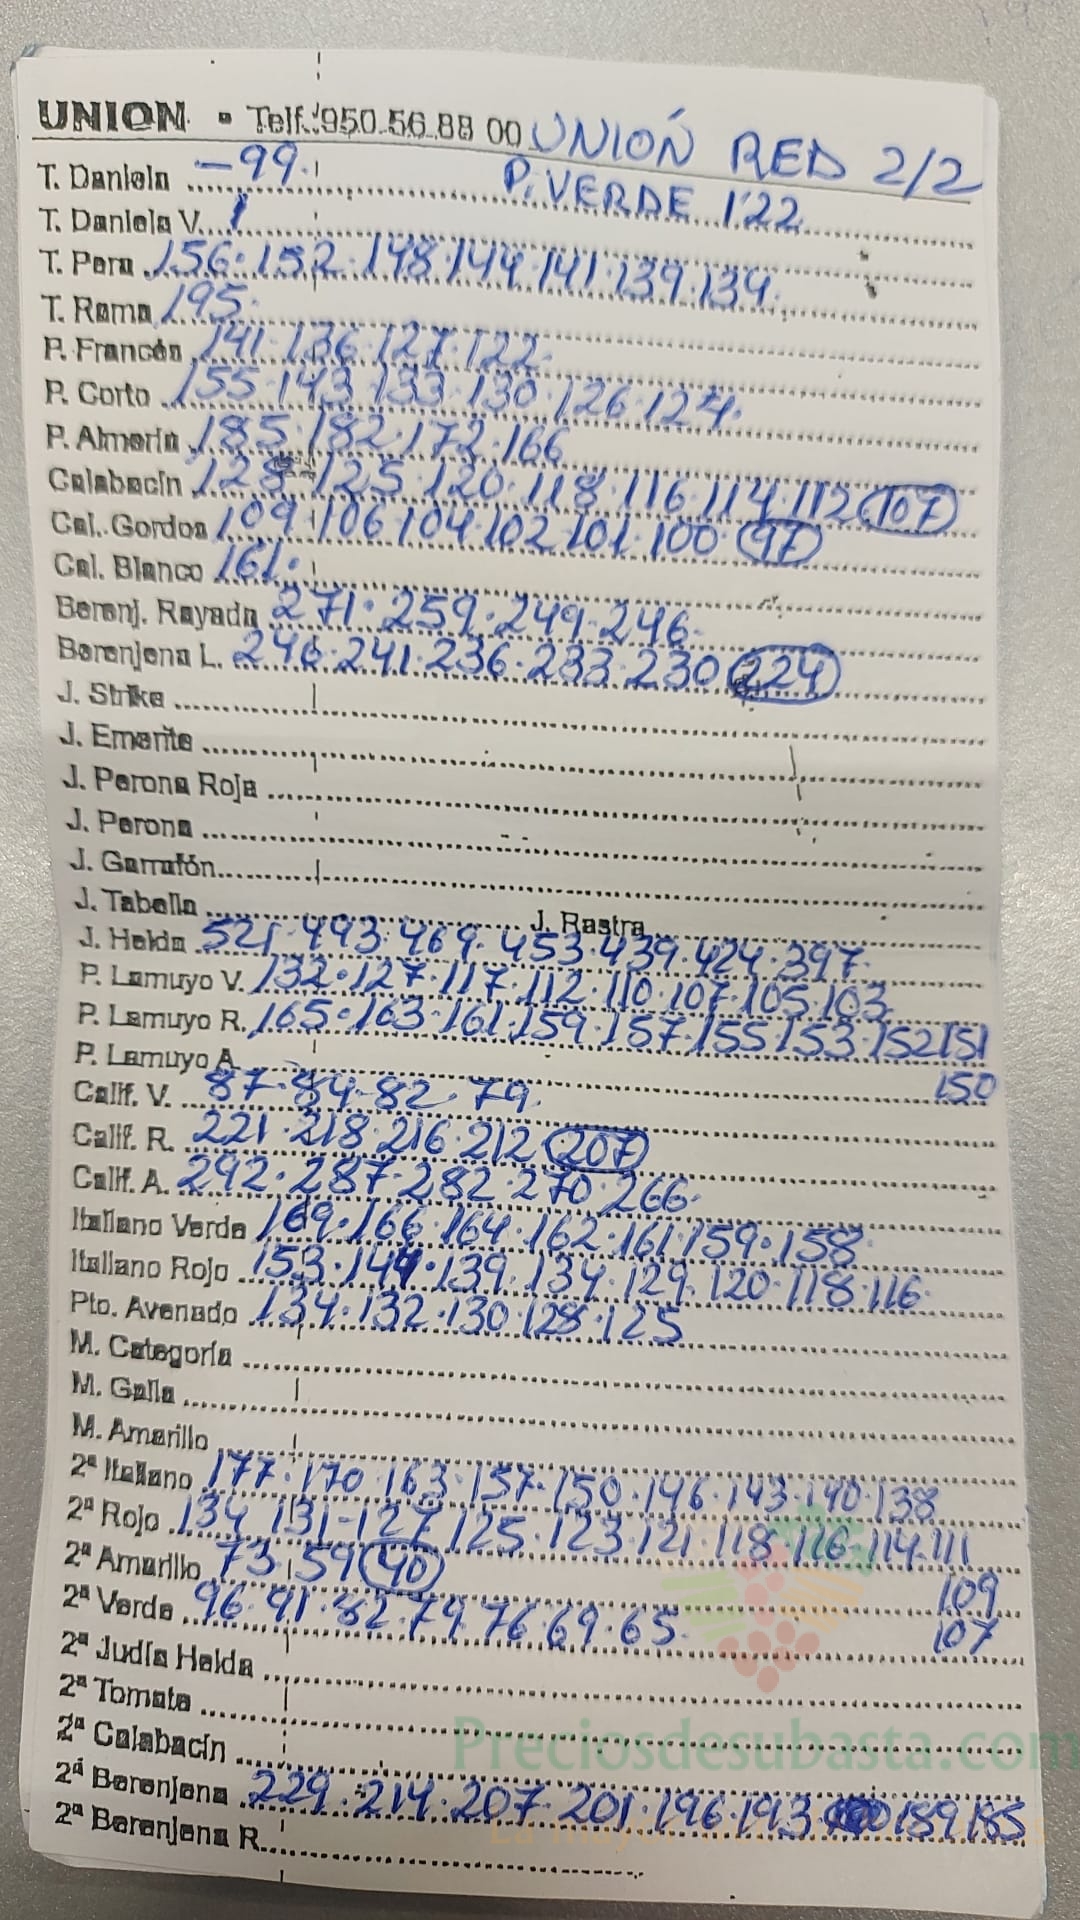 UNION - Telf.: 950 56 88 00 UNIÓN RED 2/2
T. Daniela -99. P. VERDE 1'22
T. Daniela V.
T. Pera 156·152·148·144·141·139·134
T. Rama 195
P. Francés 141·136·127·122
P. Corto 155·143·133·130·126·124
P. Almería 185·182·172·166
Calabacín 128·125·120·118·116·114·112 107
Cal. Gordos 109·106·104·102·101·100 97
Cal. Blanco 161
Berenj. Rayada 271·259·249·246
Berenjena L. 246·241·236·233·230 224
J. Strike
J. Emerite
J. Perona Roja
J. Perona
J. Garrafón
J. Tabella J. Rastra
J. Helda 521·493·469·453·439·424·397
P. Lamuyo V. 132·127·117·112·110·107·105·103
P. Lamuyo R. 165·163·161·159·157·155·153·152 151
P. Lamuyo A. 150
Calif. V. 87·84·82·79
Calif. R. 221·218·216·212 207
Calif. A. 292·287·282·270·266
Italiano Verde 169·166·164·162·161·159·158
Italiano Rojo 153·144·139·134·129·120·118·116
Pto. Asado 134·132·130·128·125
M. Categoría
M. Galia
M. Amarillo
2ª Italiano 177·170·163·157·150·146·143·140·138
2ª Rojo 134 131-127 125·123·121·118·116·114·111
2ª Amarillo 73·59 40 109
2ª Verde 96·91·82·79·76·69·65 107
2ª Judía Helda
2ª Tomate
2ª Calabacín
Preciosdesubasta.com
2ª Berenjena 229·214·207·201·196·193 189 185
2ª Berenjena R.